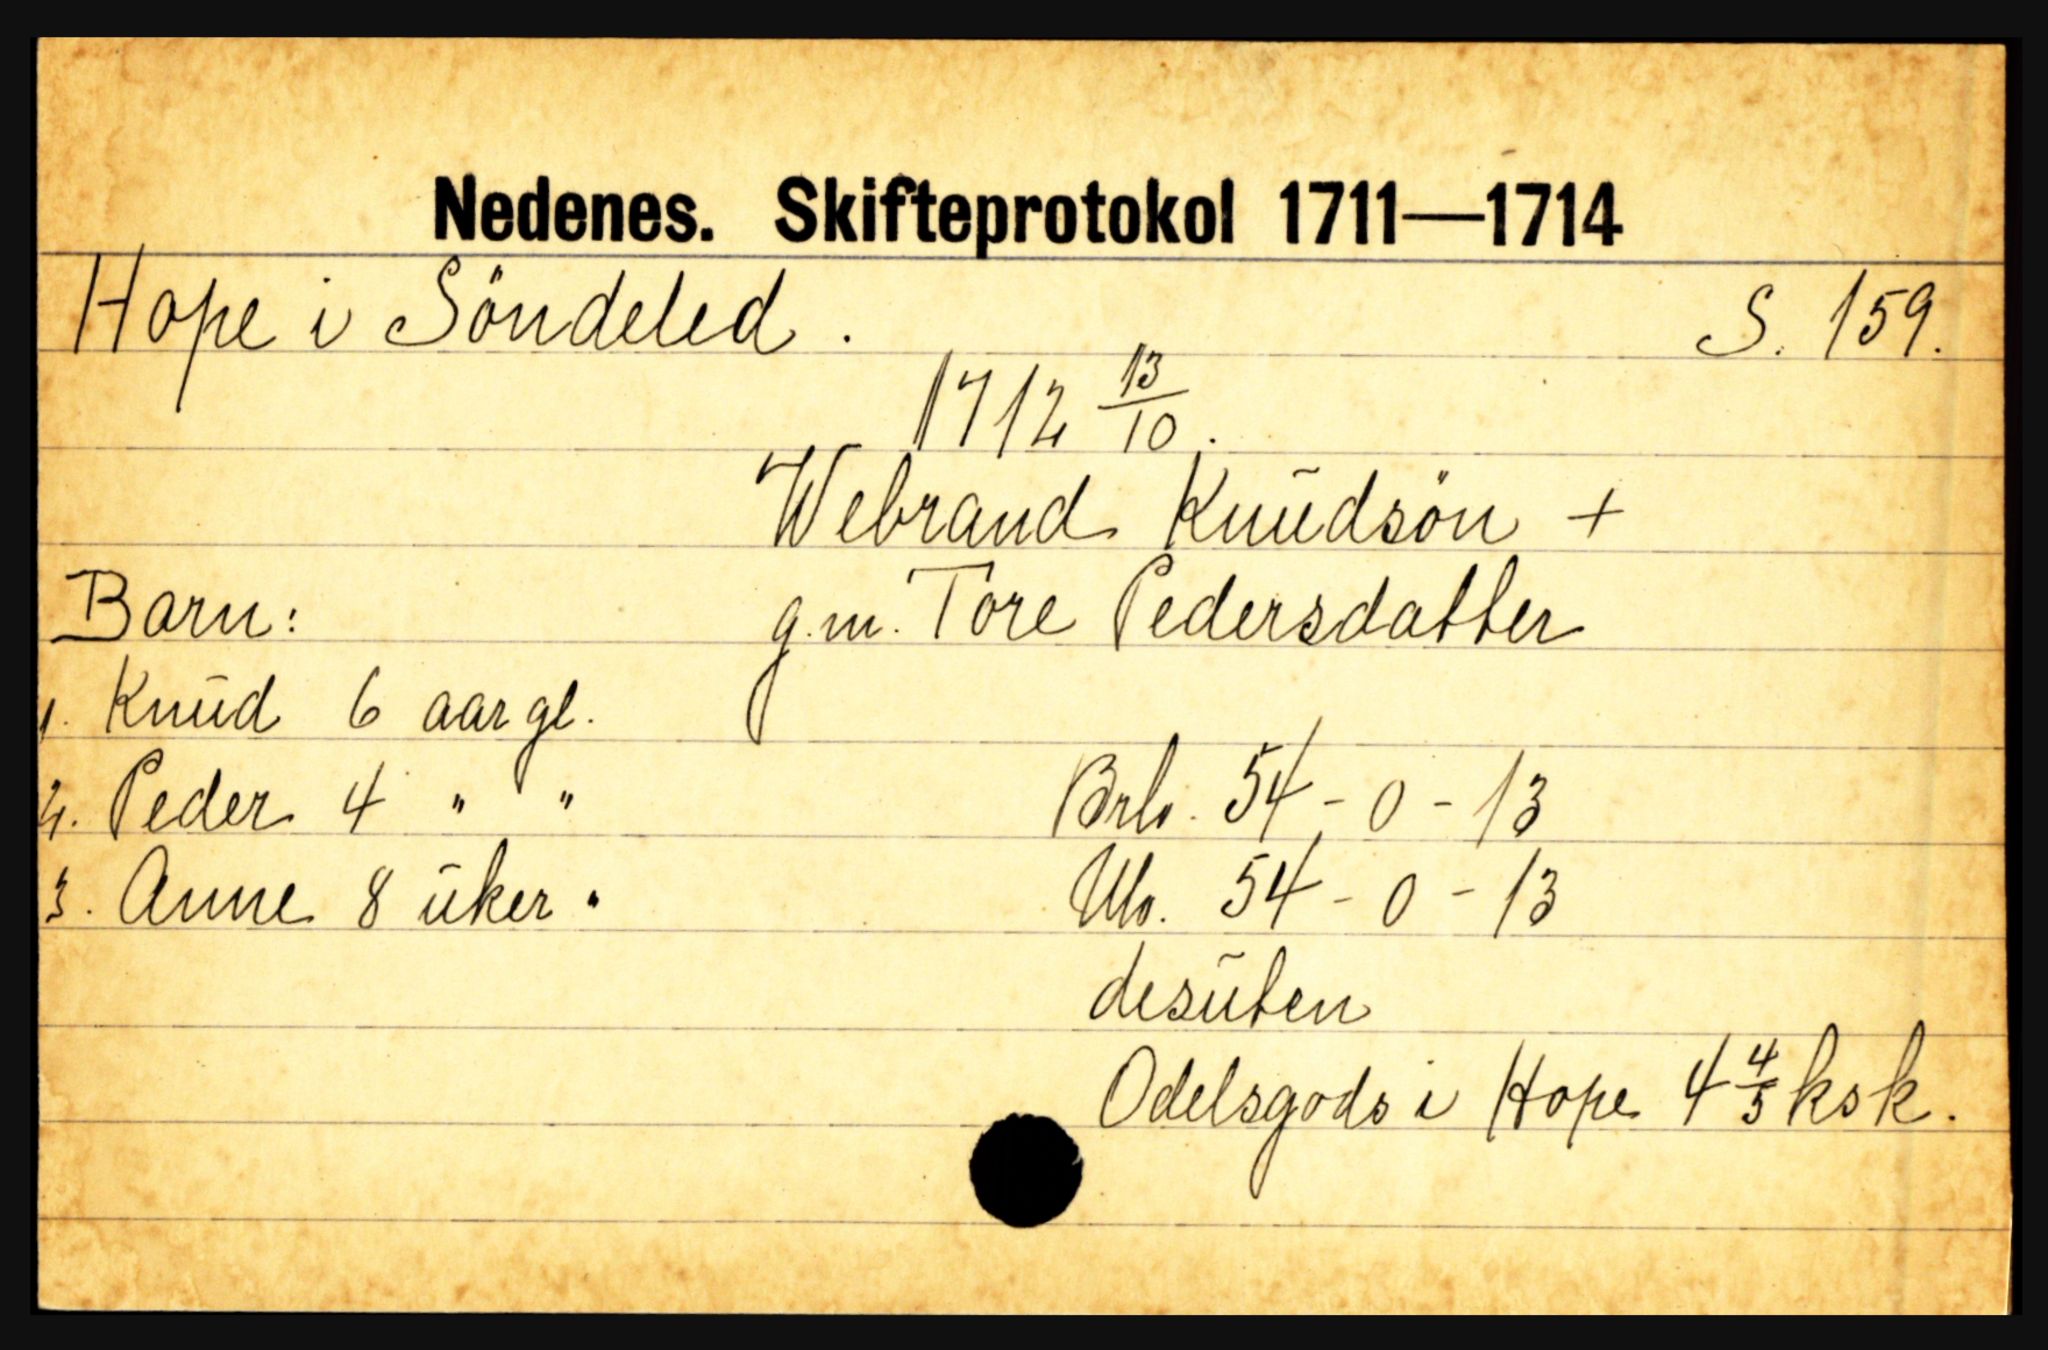 Nedenes. Skifteprotokol 1711—1714
Hope i Söndeled. S. 159.
1712 13/10.
Webrand Knūdsön +
Barn: g.m. Tore Pedersdatter
1. Knūd 6 aar gl.
2. Peder 4 " " Brto. 54 - 0 - 13
3. Anne 8 ūker. Nto. 54 - 0 - 13
desūten
Odelsgods i Hope 4 4/5 ksk.